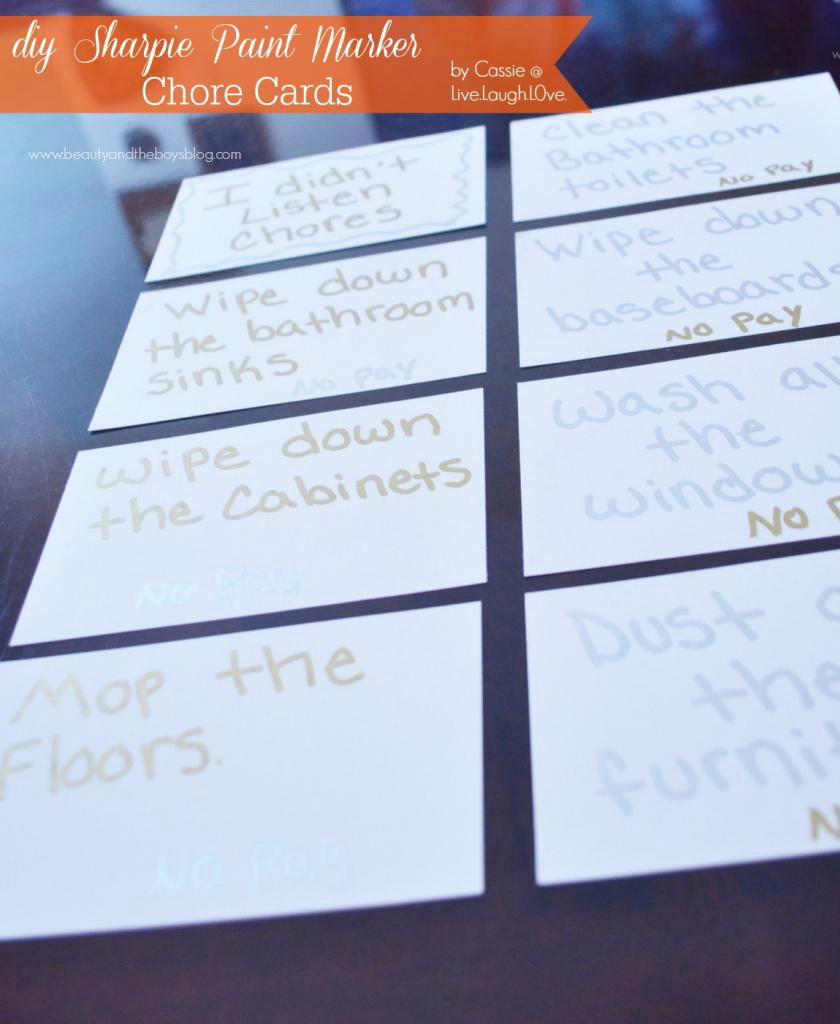 diy Sharpie Paint Marker
Chore Cards
by Cassie @
Live.Laugh.L0ve.
www.beautyandtheboysblog.com
w
I didn't
Listen
chores
Clean the
Bathroom
toilets
No Pay
Wipe down
the bathroom
sinks
No Pay
Wipe down
the
baseboards
No Pay
Wipe down
the Cabinets
No Pay
Wash all
the
window
No P
Mop the
Floors.
No Pay
Dust a
the
furnit
N